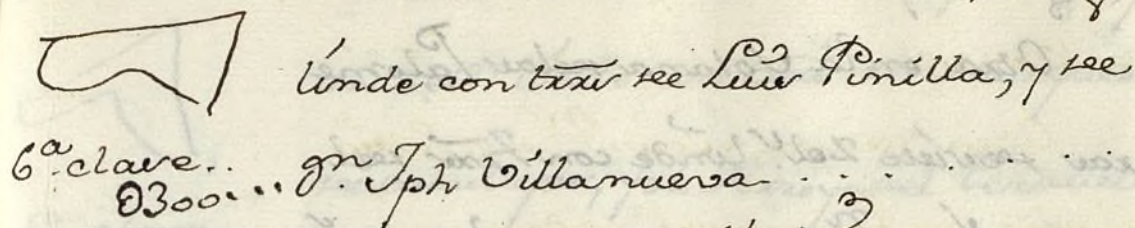 linde con trrãs de Luis Pinilla, y de
6ª clave.. Dn. Jph Villanueva . . . . . .
0300...